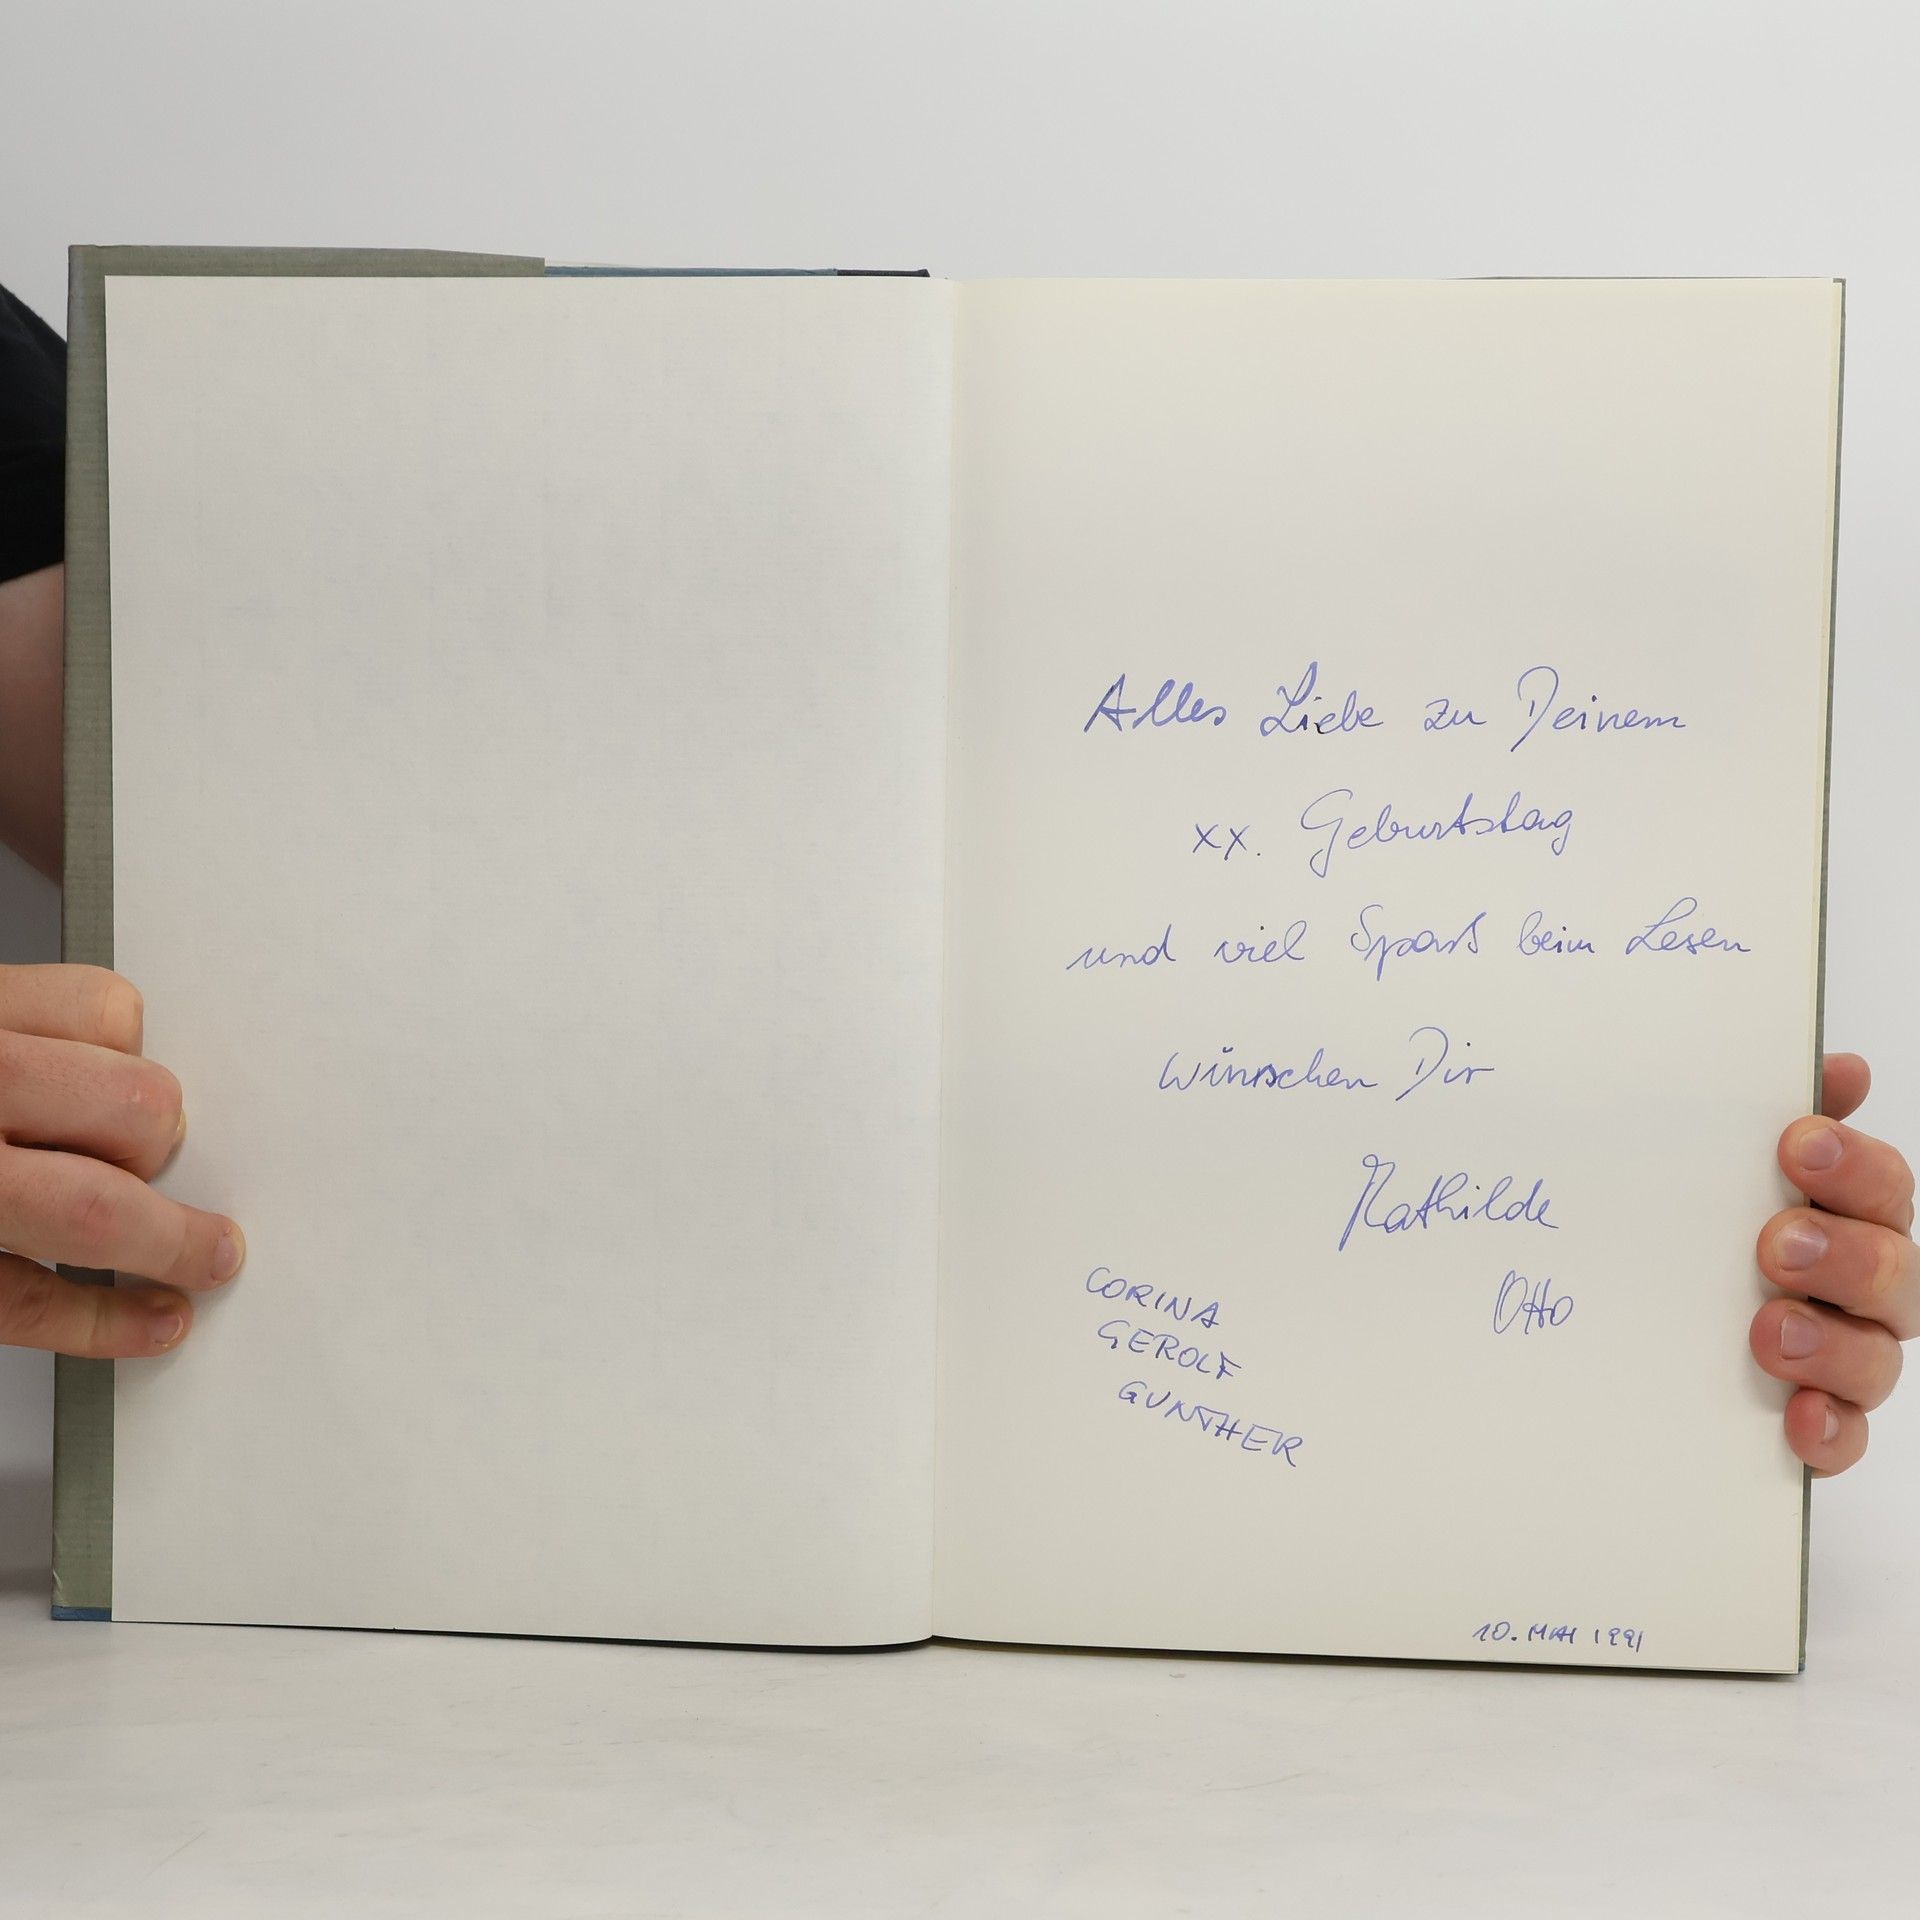 Alles Liebe zu Deinem
xx. Geburtstag
und viel Spaß beim Lesen
wünschen Dir
Mathilde
Otto
CORINA
GEROLF
GUNTHER
10. MAI 1991